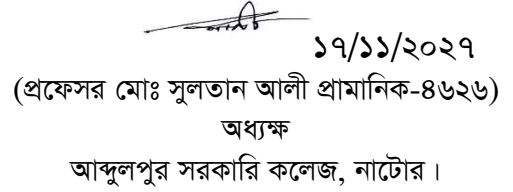 ১৭/১১/২০২৭
(প্রফেসর মোঃ সুলতান আলী প্রামানিক-৪৬২৬)
অধ্যক্ষ
আব্দুলপুর সরকারি কলেজ, নাটোর।